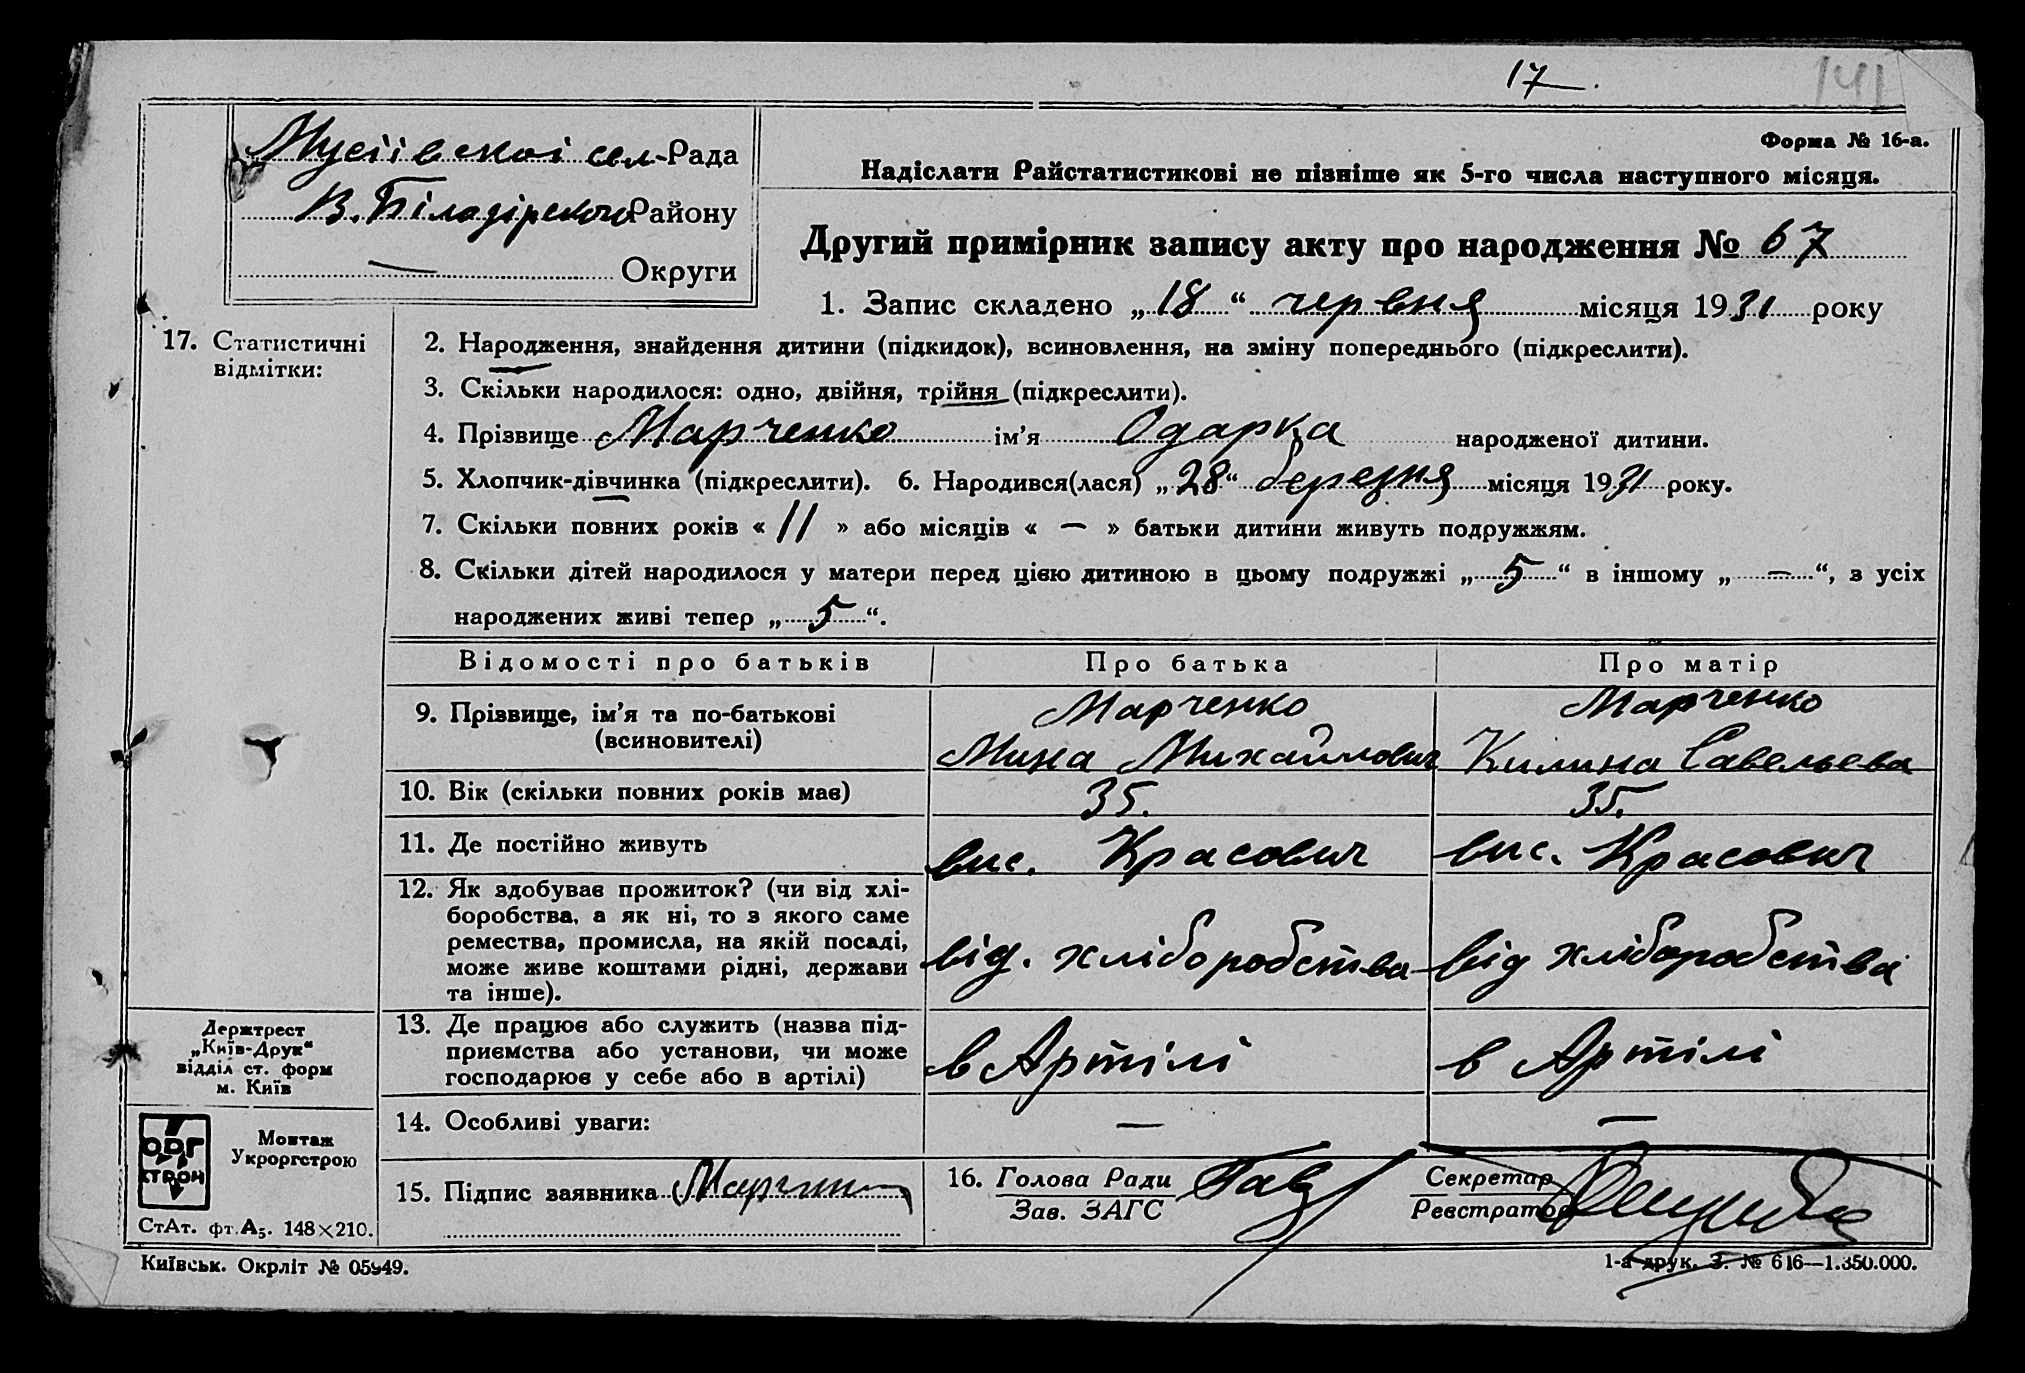 17
141
Мусіівскоі сел-Рада
В. Білозірского Району
— Округи
Форма № 16-а.
Надіслати Райстатистикові не пізніше як 5-го числа наступного місяця.
Другий примірник запису акту про народження № 67
1. Запис складено „18“ червня місяця 1931 року
17. Статистичні
відмітки:
2. Народження, знайдення дитини (підкидок), всиновлення, на зміну попереднього (підкреслити).
3. Скільки народилося: одно, двійня, трійня (підкреслити).
4. Прізвище Марченко ім’я Одарка народженої дитини.
5. Хлопчик-дівчинка (підкреслити). 6. Народився(лася) „28“ березня місяця 1931 року.
7. Скільки повних років « 11 » або місяців « — » батьки дитини живуть подружжям.
8. Скільки дітей народилося у матери перед цією дитиною в цьому подружжі „5“ в іншому „—“, з усіх
народжених живі тепер „5“.
Відомості про батьків Про батька Про матір
9. Прізвище, ім’я та по-батькові
(всиновителі)
Марченко
Мина Михайлович
Марченко
Килина Савельева
10. Вік (скільки повних років має) 35. 35.
11. Де постійно живуть вис. Красович вис. Красович
12. Як здобуває прожиток? (чи від хлі-
боробства, а як ні, то з якого саме
ремества, промисла, на якій посаді,
може живе коштами рідні, держави
та інше).
від. хліборобства від хліборобства
13. Де працює або служить (назва під-
приємства або установи, чи може
господарює у себе або в артілі)
в Артілі в Артілі
14. Особливі уваги: — —
15. Підпис заявника
16. Голова Ради
Зав. ЗАГС
Секретар
Реєстратор
Держтрест
„Київ-Друк“
відділ ст. форм
м. Київ
ОРГ
СТРОМ
Монтаж
Укроргстрою
СтАт. фт. А5. 148×210.
Київськ. Окрліт № 05949.
1-а друк. З. № 616—1.350.000.